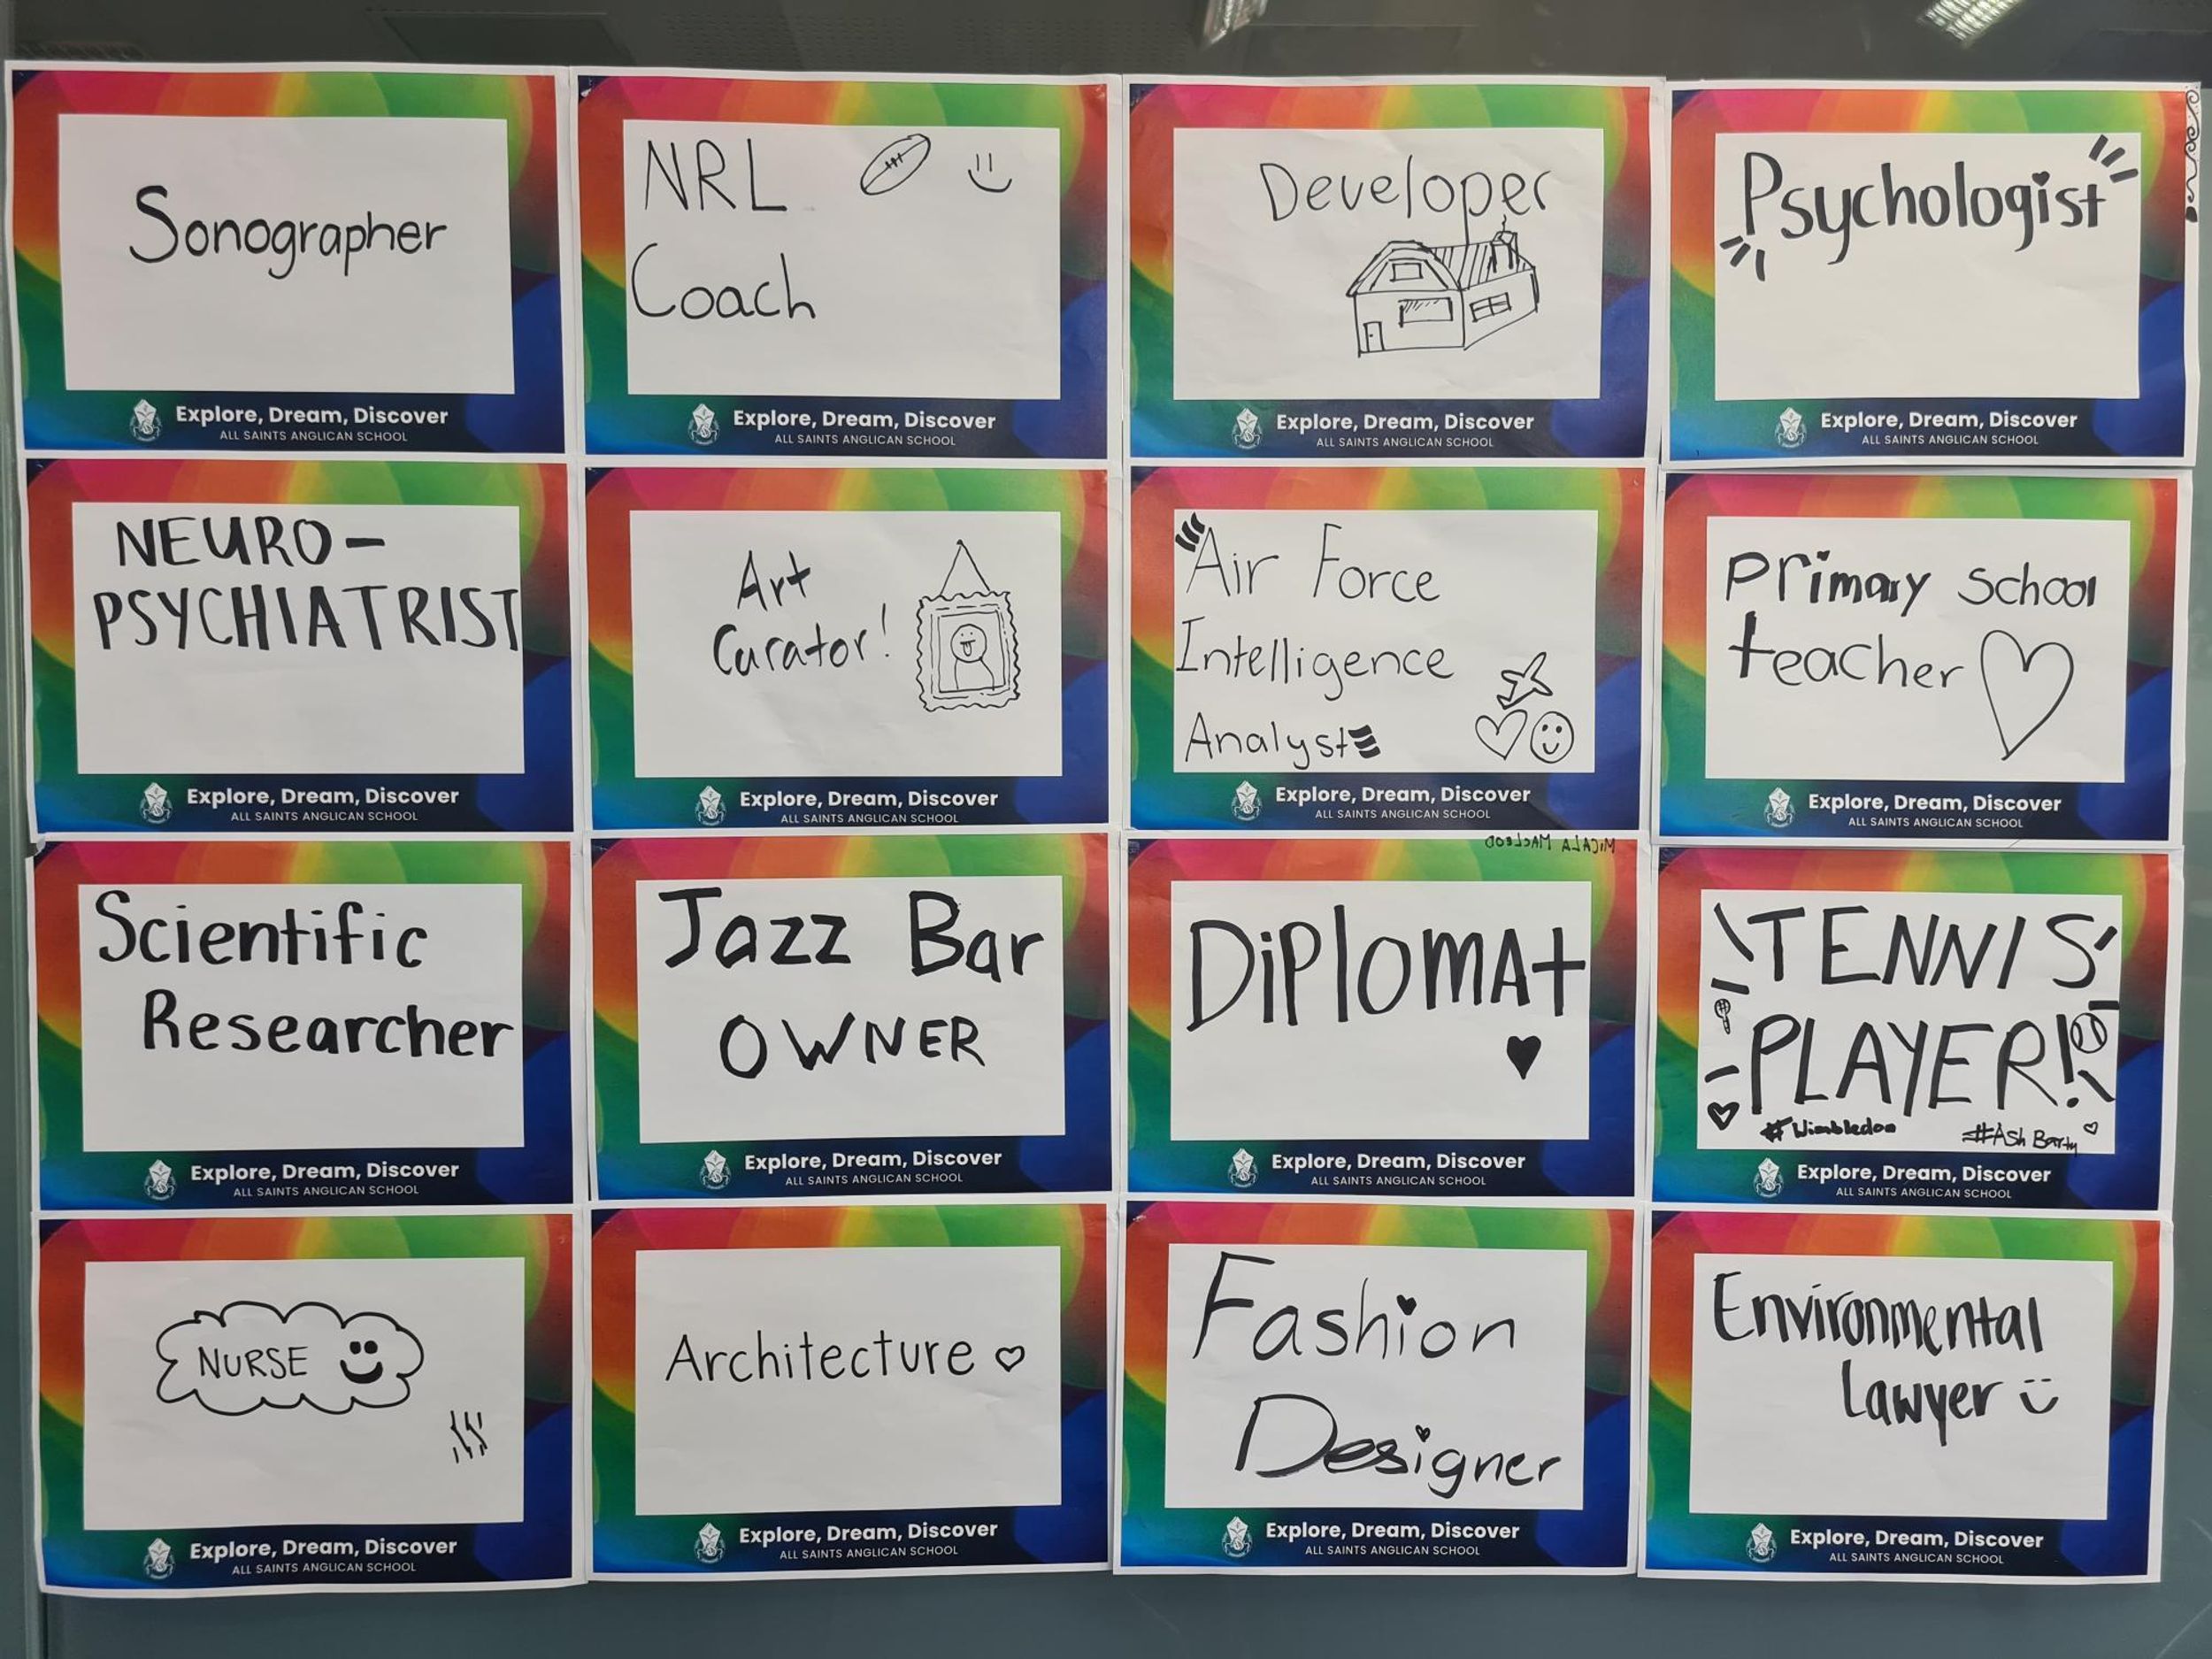 Sonographer
Explore, Dream, Discover
ALL SAINTS ANGLICAN SCHOOL
NRL
Coach
Explore, Dream, Discover
ALL SAINTS ANGLICAN SCHOOL
Developer
Explore, Dream, Discover
ALL SAINTS ANGLICAN SCHOOL
Psychologist
Explore, Dream, Discover
ALL SAINTS ANGLICAN SCHOOL
NEURO-
PSYCHIATRIST
Explore, Dream, Discover
ALL SAINTS ANGLICAN SCHOOL
Art
Curator!
Explore, Dream, Discover
ALL SAINTS ANGLICAN SCHOOL
Air Force
Intelligence
Analyst
Explore, Dream, Discover
ALL SAINTS ANGLICAN SCHOOL
Primary School
teacher
Explore, Dream, Discover
ALL SAINTS ANGLICAN SCHOOL
Scientific
Researcher
Explore, Dream, Discover
ALL SAINTS ANGLICAN SCHOOL
Jazz Bar
OWNER
Explore, Dream, Discover
ALL SAINTS ANGLICAN SCHOOL
MiCALA MACLEOD
DiPlomAt
Explore, Dream, Discover
ALL SAINTS ANGLICAN SCHOOL
TENNIS
PLAYER!
#Wimbledon
#Ash Barty
Explore, Dream, Discover
ALL SAINTS ANGLICAN SCHOOL
NURSE
Explore, Dream, Discover
ALL SAINTS ANGLICAN SCHOOL
Architecture
Explore, Dream, Discover
ALL SAINTS ANGLICAN SCHOOL
Fashion
Designer
Explore, Dream, Discover
ALL SAINTS ANGLICAN SCHOOL
Environmental
Lawyer
Explore, Dream, Discover
ALL SAINTS ANGLICAN SCHOOL